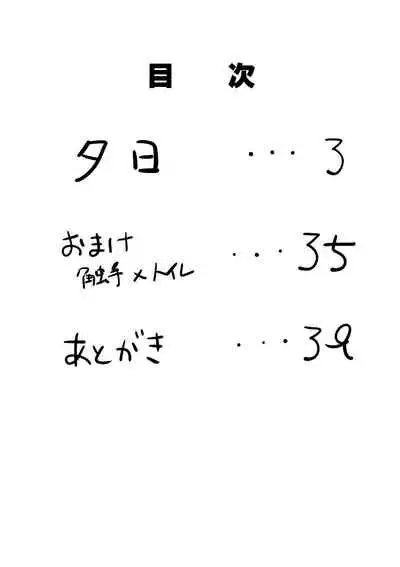 目 次
夕日 ･･･3
おまけ ･･･35
触手×トイレ
あとがき ･･･39